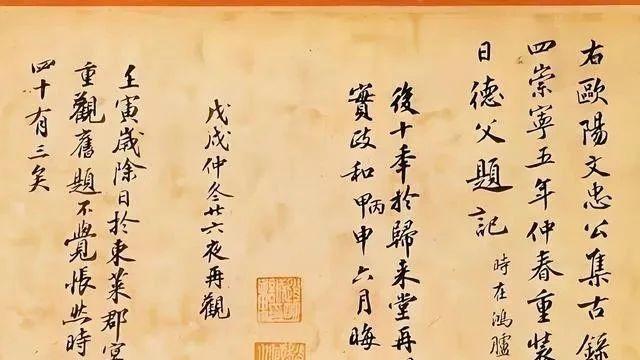 右歐陽文忠公集古錄
四崇寧五年仲春重裝
日德父題記 時在鴻臚
後十秊於歸来堂再
實政和甲丙申六月晦
戊戌仲冬廿六夜再觀
壬寅歲除日於東萊郡宴
重觀舊題不覺悵然時
四十有三矣